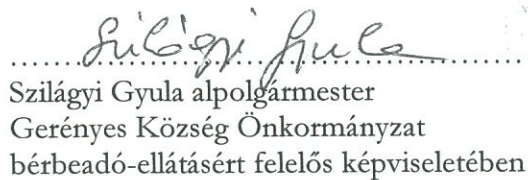 Szilágyi Gyula
Szilágyi Gyula alpolgármester
Gerényes Község Önkormányzat
bérbeadó-ellátásért felelős képviseletében